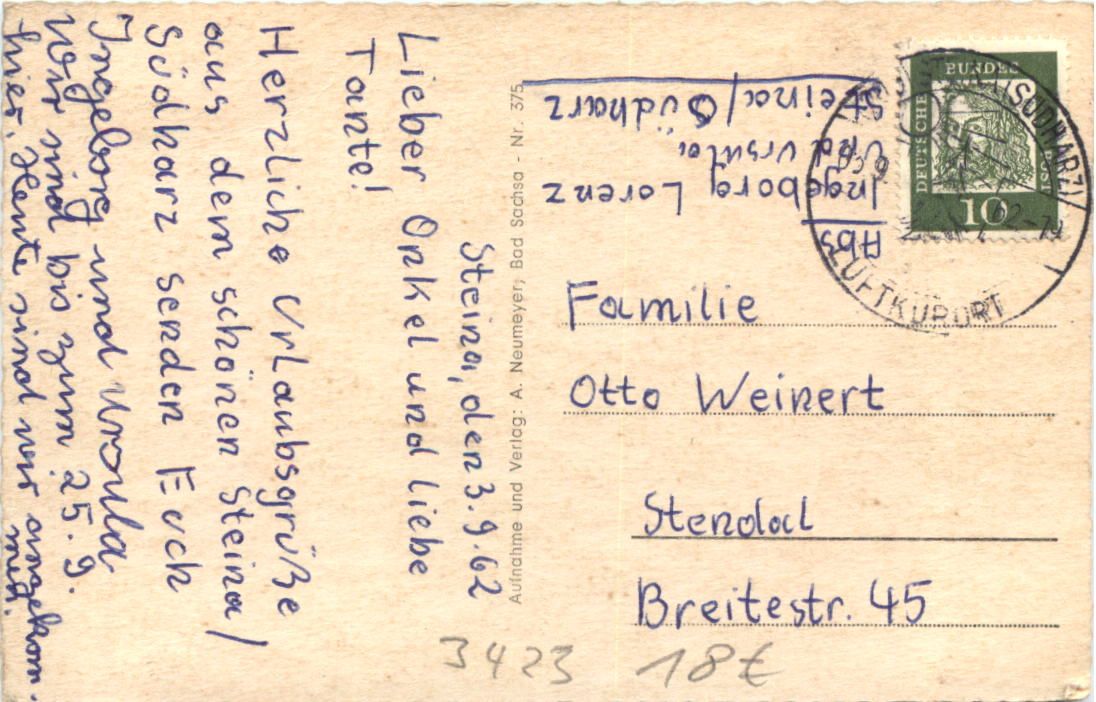 Steina, den 3.9.62
Lieber Onkel und liebe
Tante!
Herzliche Urlaubsgrüße
aus dem schönen Steina/
Südharz senden Euch
Ingeborg und Ursula
Wir sind bis zum 25.9.
hier. Heute sind wir angekom.
Aufnahme und Verlag: A. Neumeyer, Bad Sachsa - Nr. 375
Abs
Ingeborg Lorenz
und Ursula
Steina/Südharz
DEUTSCHE
BUNDES
10
(SÜDHARZ)
62-19
LUFTKURORT
Familie
Otto Weinert
Stendal
Breitestr. 45
3423 18€